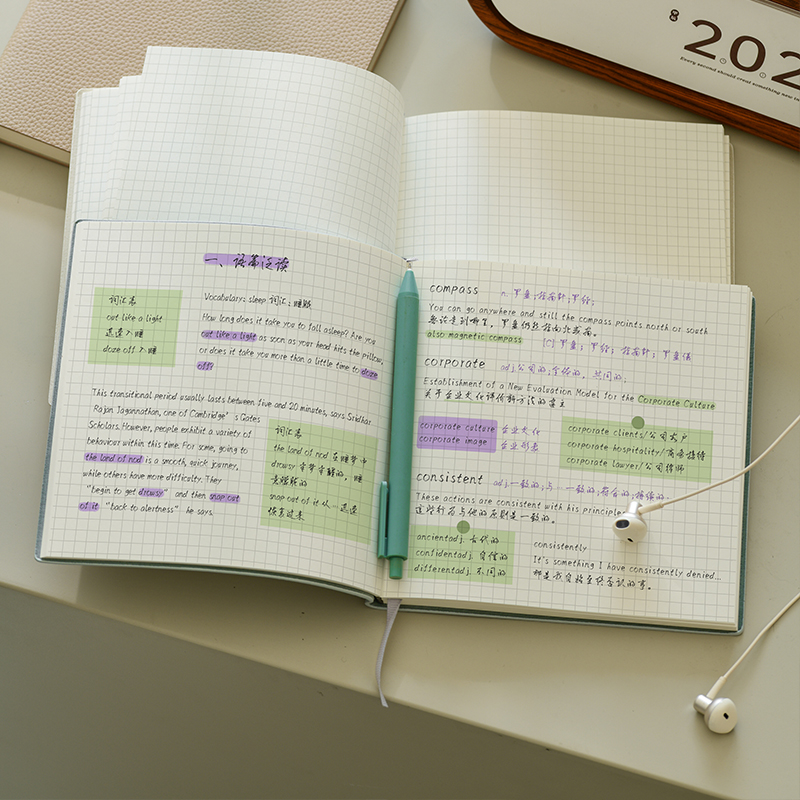 202
Every second should creat something new in
一、语篇泛读
词汇表
out like a light
迅速入睡
doze off 入睡
Vocabulary: sleep 词汇:睡眠
How long does it take you to fall asleep? Are you
out like a light as soon as your head hits the pillow,
or does it take you more than a little time to doze
off?
This transitional period usually lasts between five and 20 minutes, says Sridhar
Rajan Jagannathan, one of Cambridge's Gates
Scholars. However, people exhibit a variety of
behaviour within this time. For some, going to
the land of nod is a smooth, quick journey,
while others have more difficulty. They
"begin to get drowsy" and then snap out
of it "back to alertness" he says.
词汇表
the land of nod 在睡梦中
drowsy 半梦半醒的,睡
意朦胧的
snap out of it 从…迅速
恢复过来
compass n. 罗盘;指南针;罗经;
You can go anywhere and still the compass points north or south
无论走到哪里,罗盘仍然指向北或南。
also magnetic compass [C] 罗盘;罗经;指南针;罗盘仪
corporate adj.公司的;全体的,共同的;
Establishment of a New Evaluation Model for the Corporate Culture
关于企业文化评价新方法的
corporate culture 企业文化
corporate image 企业形象
corporate clients/公司客户
corporate hospitality/商务接待
corporate lawyer/公司律师
consistent adj.一致的;与…一致的;符合的;持续的;
These actions are consistent with his principles
这些行为与他的原则是一致的。
ancientadj. 古代的
confidentadj. 自信的
differentadj. 不同的
consistently
It's something I have consistently denied...
那是我自始至终否认的事。